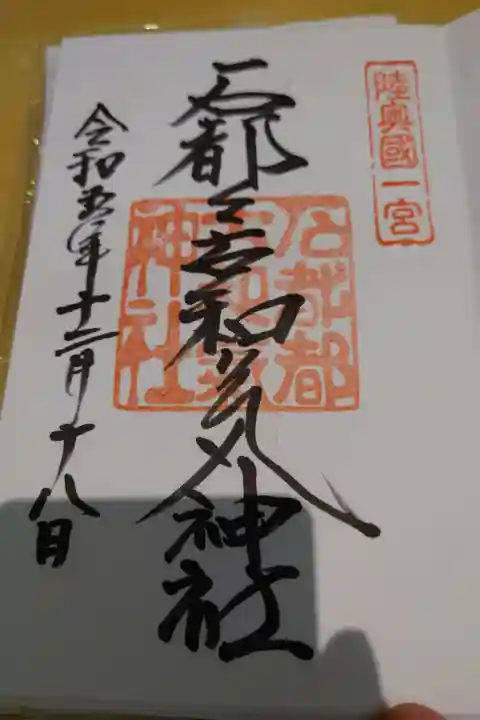 陸奥國一宮
石都々古和氣神社
石都都
古和氣
神社
令和五年十二月十八日